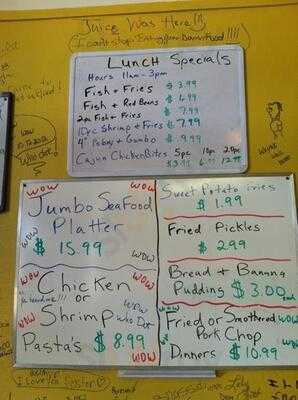 Juice Was Here!!
(I can't stop Eating your Damn Food!!!!)
Lunch Specials
Hours 11am-3pm
Fish + Fries $3.99
Fish + Red Beans $6.99
2pc Fish + Fries $7.99
10pc Shrimp + Fries $7.99
4" Poboy + Gumbo $9.99
Cajun Chicken Bites 5pc 10pc 20pc
$3.99 6.99 12.99
wow
wow
Jumbo Seafood
Platter
wow
wow
$15.99
wow
wow
wow
Chicken
or
wow
wow
Shrimp
Who Dat
Pasta's $8.99
wow
Sweet Potato Fries
$1.99
Fried Pickles
$2.99
Bread + Banana
Pudding $3.00
wow
Fried or Smothered
wow
Pork Chop
Dinners $10.99
wow
Who dat!
I Love You Sister